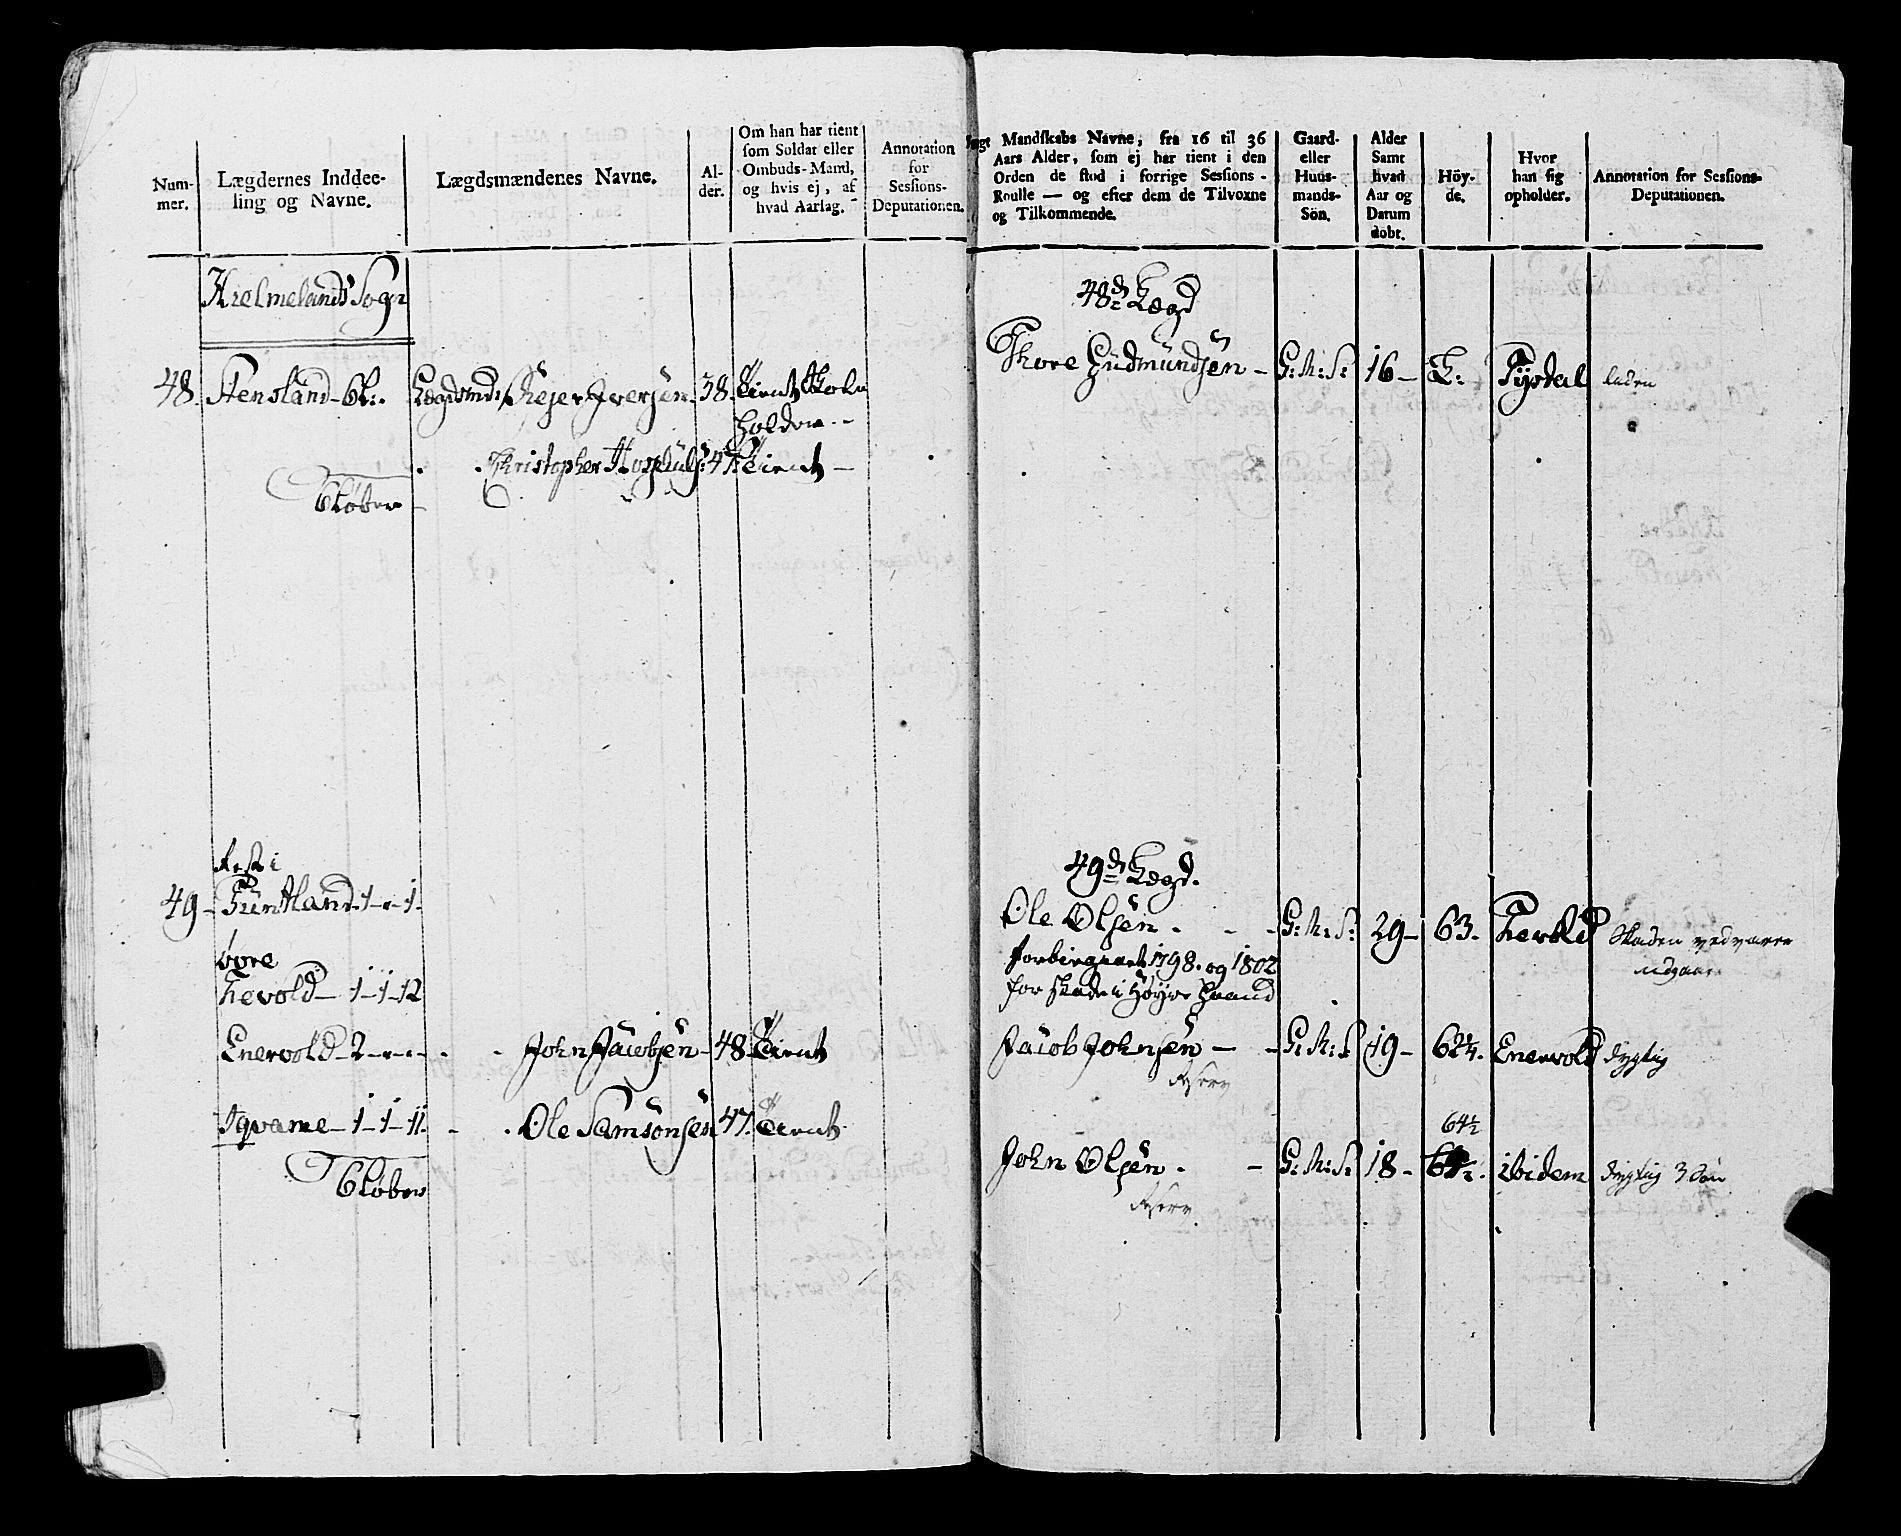 Num-
mer.
Lægdernes Inddee-
ling og Navne.
Lægdsmændenes Navne.
Al-
der.
Om han har tient
som Soldat eller
Ombuds-Mand,
og hvis ej, af
hvad Aarsag.
Annotation
for
Sessions-
Deputationen.
Hielmelands Sogn
48. Stensland - 6 L:. Lægdsmd: Iversen 38. Tient
Christopher 47. Tient —
6 Løber
Rest i
49 - Funtland - 1 - " - 1.
øvre
Tievold - 1 - 1 - 12
Enervold - 2 - " - " - John Jacobsen - 48. Tient
Qvame - 1 - 1 - 11. Ole Samsonsen 47. Tient
6 Løber
Mandskabs Navne, fra 16 til 36
Aars Alder, som ej har tient i den
Orden de stod i forrige Sessions-
Roulle — og efter dem de Tilvoxne
og Tilkommende.
Gaard-
eller
Huus-
mands-
Sön.
Alder
Samt
hvad
Aar og
Datum
döbt.
Höy-
de.
Hvor
han sig
opholder.
Annotation for Sessions-
Deputationen.
48de Lægd
Tore Gudmundsen - G: M: S: 16 - L: Tysdal liden
49de Lægd.
Ole Olsen - G: M: S: 29 - 63. Tievold Skaden vedvarer
udgaar
forbigaaet 1798. og 1802
for Skade i Høyre Haand
Jacob Johnsen - G: M: S 19 - 62½. Enervold dygtig
Reserv
64½
John Olsen - G: M: S: 18 - ibidem dygtig 3 Søn
Reserv